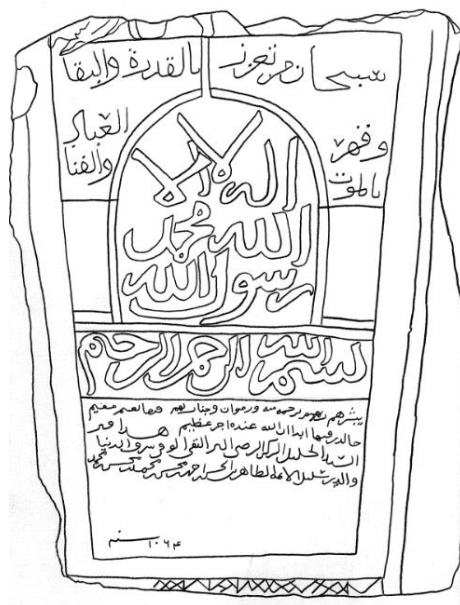 سبحان من تعزز بالقدرة والبقا
وقهر العباد
بالموت والفنا
لا اله الا
الله محمد
رسول الله
بسم الله الرحمن الرحيم
يبشرهم ربهم برحمة منه ورضوان وجنات لهم فيها نعيم مقيم
خالدين فيها ابدا ان الله عنده اجر عظيم هذا قبر
السيد الجليل الزكي الرضي البر التقي
والدين سليل الائمة الطاهرين احمد بن محسن بن محمد
سنة ١٠٦٤